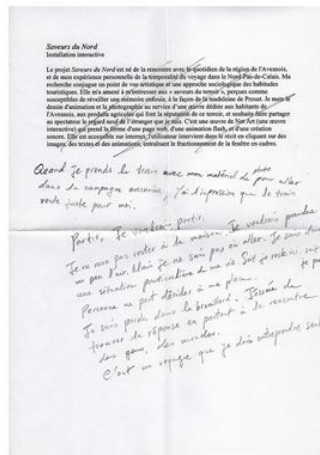 Saveurs du Nord
Installation interactive
Le projet Saveurs du Nord est né de la rencontre avec le quotidien de la région de l'Avesnois,
et de mon expérience personnelle de la temporalité du voyage dans le Nord-Pas-de-Calais. Ma
recherche conjugue un point de vue artistique et une approche sociologique des habitudes
touristiques. Elle m'a amené à m'intéresser aux « saveurs du terroir », perçues comme
susceptibles de réveiller une mémoire enfouie, à la façon de la madeleine de Proust. Je mets le
dessin d'animation et la photographie au service d'une œuvre dédiée aux habitants de
l'Avesnois, aux produits agricoles qui font la réputation de ce terroir, et souhaite faire partager
au spectateur le regard neuf de l'étranger que je suis. C'est une œuvre de Net Art (une œuvre
interactive) qui prend la forme d'une page web, d'une animation flash, et d'une création
sonore. Elle est accessible sur internet, l'utilisateur intervient dans le récit en cliquant sur des
images, des textes et des animations, entraînant le fractionnement de la fenêtre en cadres.
Quand je prends le train avec mon matériel de photo
dans la campagne pour aller
j'ai l'impression que le train
roule juste pour moi.
Partir, Je voudrais partir.
Je ne veux pas rester à la maison. Je voudrais prendre
un peu l'air. Mais je ne sais pas où aller. Je suis dans
une situation particulière de ma vie. Soit je reste ici, soit
je pa
Personne ne peut décider à ma place.
Je suis perdu dans le brouillard.
trouver la réponse en partant à la rencontre
des gens, des mondes.
C'est un voyage que je dois entreprendre seul